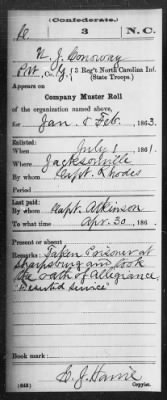 (Confederate.)
C 3 N.C.
N. J. Conoway
Pvt., Co. G, 3 Reg't North Carolina Inf.
(State Troops.)
Appears on
Company Muster Roll
of the organization named above,
for Jan. & Feb., 1863.
Enlisted:
When July 1, 1861.
Where Jacksonville
By whom Capt. Rhodes
Period
Last paid:
By whom Capt. Atkinson
To what time Apr. 30, 186
Present or absent
Remarks: Taken Prisoner at
Sharpsburg and took
the oath of Allegiance,
"Deserted service"
Book mark:
(642) Copyist.